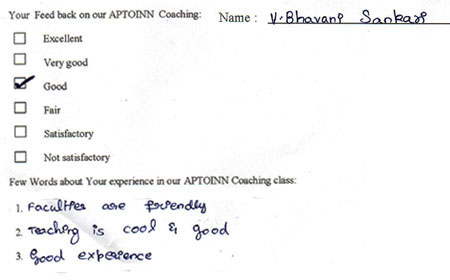 Your Feed back on our APTOINN Coaching: Name : V. Bhavani Sankari
Excellent
Very good
Good
Fair
Satisfactory
Not satisfactory
Few Words about Your experience in our APTOINN Coaching class:
1. Faculties are friendly
2. Teaching is cool & good
3. Good experience